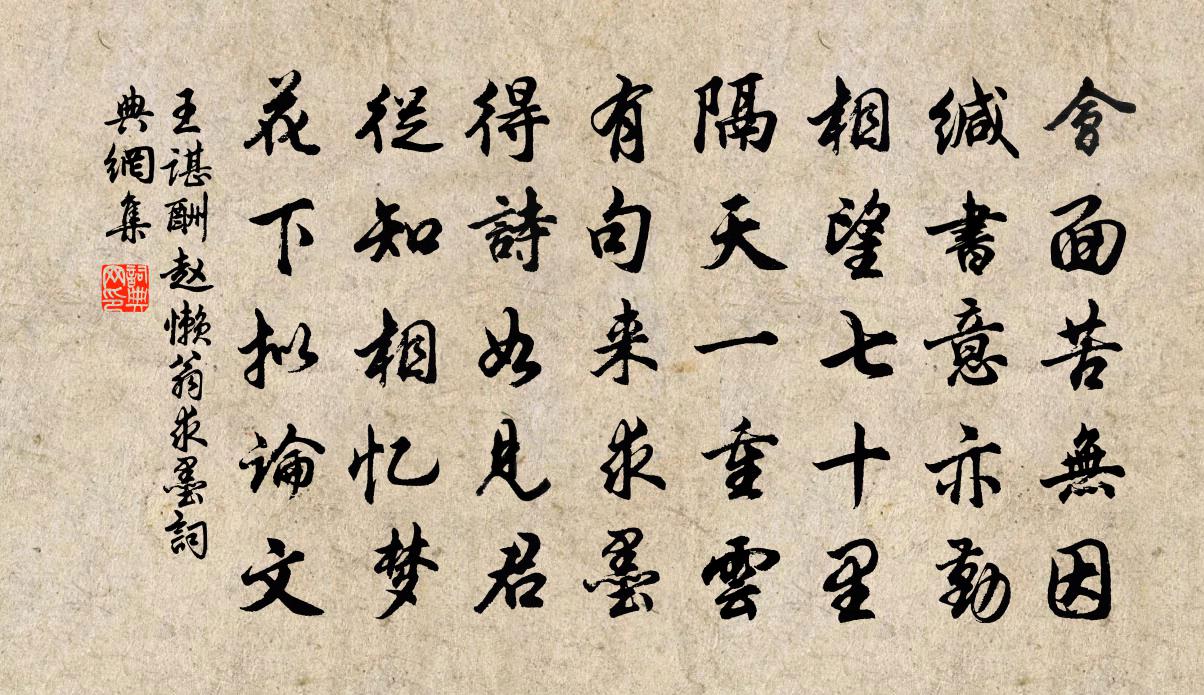 會面苦無因
緘書意亦勤
相望七十里
隔天一重雲
有句来求墨
得詩如見君
從知相忆梦
花下拟論文
王諶酬赵懒翁求墨詞
典網集
詞典
网印